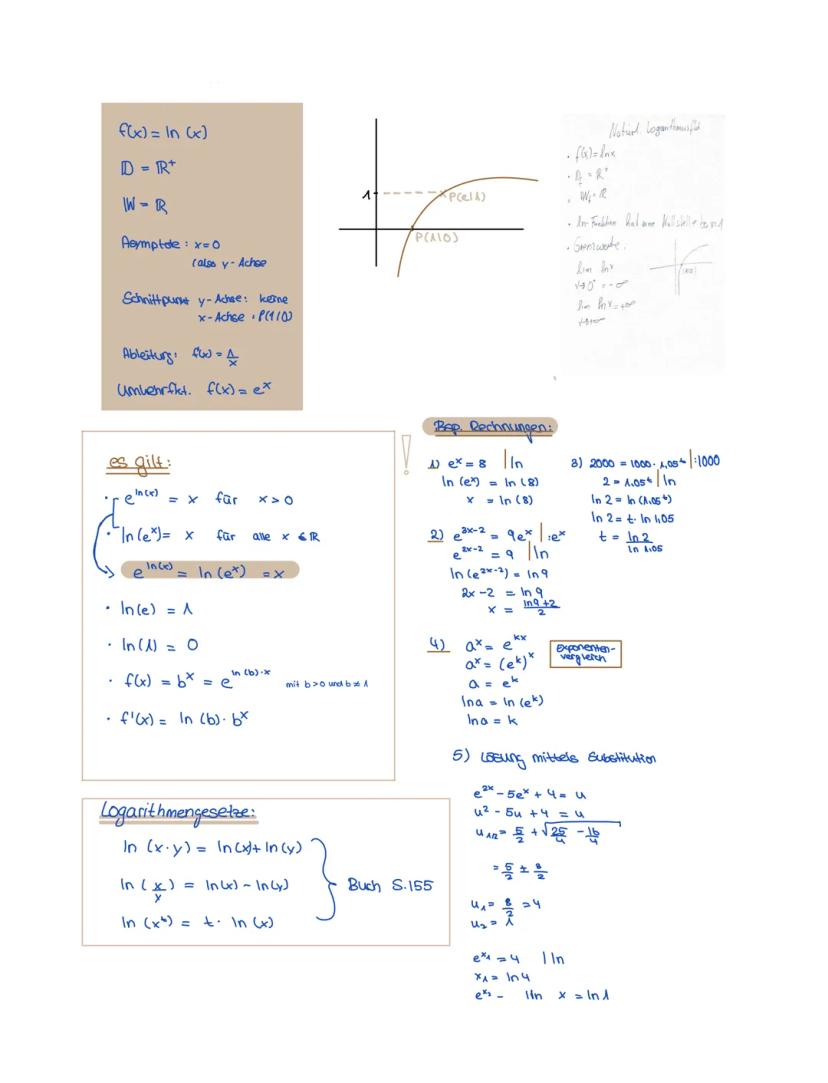 f(x) = ln (x)
D = R⁺
W = R
Asymptote : x=0
(also y-Achse
Schnittpunkt y-Achse: keine
x-Achse : P(1/0)
Ableitung: f(x) = 1/x
Umkehrfkt. f(x) = eˣ
1
P(e|1)
P(1|0)
Natürl. Logarithmusfkt
• f(x) = ln x
• D_f = R⁺
• W_f = R
• ln-Funktion hat eine Nullstelle bei x=1
• Grenzwerte:
lim ln x
x→0⁺ = -∞
lim ln x = +∞
x→+∞
(1|0)
es gilt:
!
• e^ln(x) = x für x > 0
• ln(eˣ) = x für alle x ∈ R
e^ln(x) = ln(eˣ) = x
• ln(e) = 1
• ln(1) = 0
• f(x) = bˣ = e^ln(b)·x mit b>0 und b≠1
• f'(x) = ln (b) · bˣ
Logarithmengesetze:
ln (x·y) = ln(x) + ln(y)
ln (x/y) = ln(x) - ln(y)
ln (xᵗ) = t · ln(x)
Buch S.155
Bsp. Rechnungen:
1) eˣ = 8 | ln
ln (eˣ) = ln (8)
x = ln (8)
2) e^3x-2 = 9eˣ | :eˣ
e^2x-2 = 9 | ln
ln (e^2x-2) = ln 9
2x -2 = ln 9
x = (ln 9 +2)/2
3) 2000 = 1000 · 1,05ᵗ | :1000
2 = 1.05ᵗ | ln
ln 2 = ln (1.05ᵗ)
ln 2 = t · ln 1,05
t = ln 2/ln 1.05
4) aˣ = e^kx
aˣ = (eᵏ)ˣ
a = eᵏ
ln a = ln (eᵏ)
ln a = k
Exponenten-
vergleich
5) Lösung mittels Substitution
e^2x - 5eˣ + 4 = u
u² - 5u + 4 = u
u1/2 = 5/2 + √25/4 - 16/4
= 5/2 ±
u₁ = 8/2 = 4
u₂ = 1
e^x₁ = 4 | ln
x₁ = ln 4
e^x₂ - | ln x = ln 1